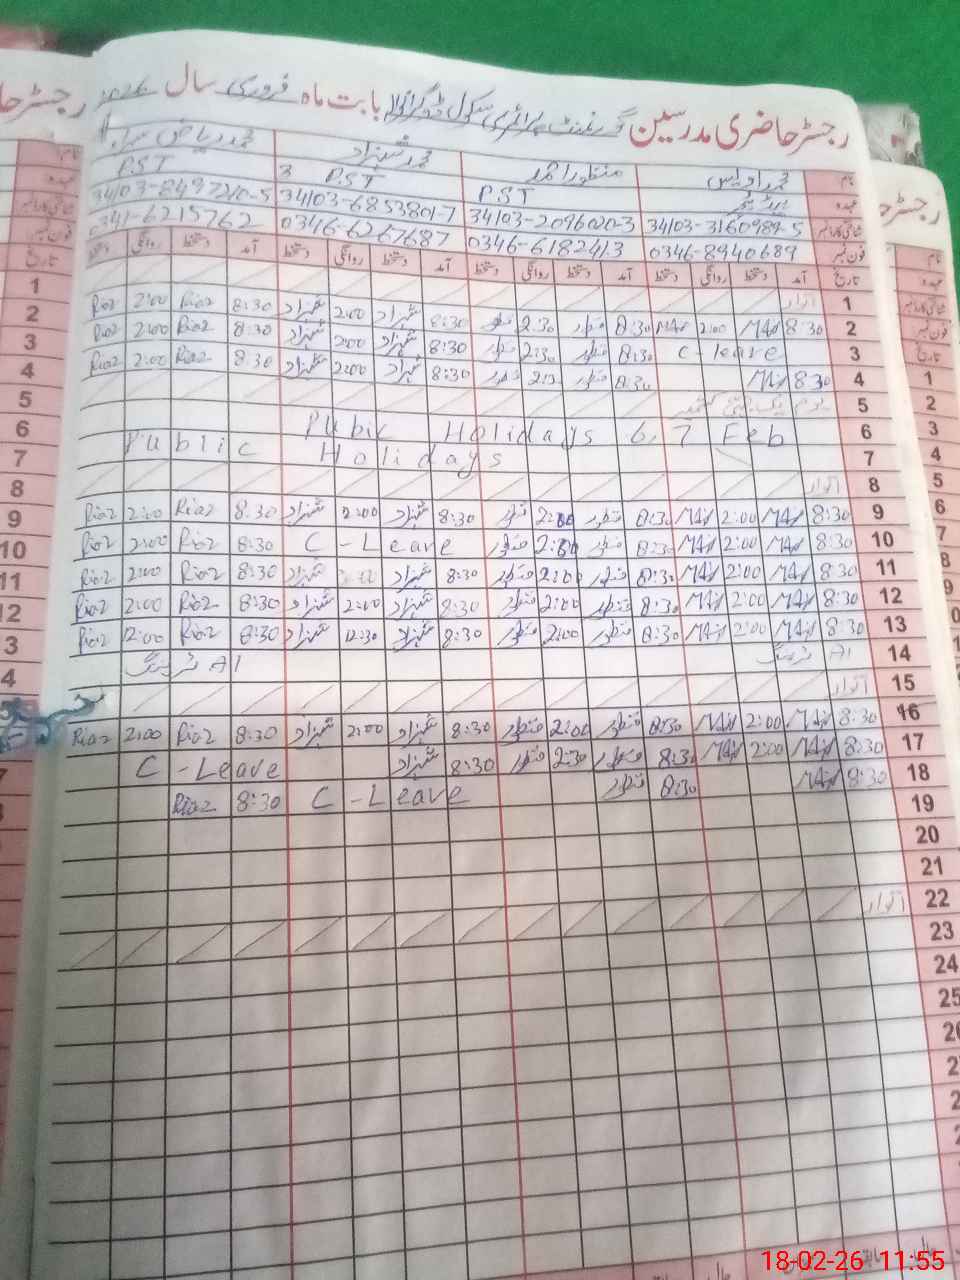 رجسٹر حاضری مدرسین گورنمنٹ پرائمری سکول بابت ماہ فروری سال 2026
نام محمد اویس منظور احمد محمد شہزاد محمد ریاض
عہدہ ہیڈ ٹیچر PST PST PST
شناختی کارڈ نمبر 34103-3160989-5 34103-2096020-3 34103-6853801-7 34103-8497210-5
فون نمبر 0346-8940689 0346-6182413 0346-6267687 0341-6215762
تاریخ آمد دستخط روانگی دستخط آمد دستخط روانگی دستخط آمد دستخط روانگی دستخط آمد دستخط روانگی دستخط
1 اتوار
2 8:30 2:00 8:30 منظور 2:30 منظور 8:30 شہزاد 2:00 شہزاد 8:30 Riaz 2:00 Riaz
3 C-leave 8:30 منظور 2:30 منظور 8:30 شہزاد 2:00 شہزاد 8:30 Riaz 2:00 Riaz
4 8:30 8:30 منظور 2:30 منظور 8:30 شہزاد 2:00 شہزاد 8:30 Riaz 2:00 Riaz
5 یوم یکجہتی کشمیر
6 Pubic Holidays 6,7 Feb
7 Public Holidays
8 اتوار
9 8:30 2:00 8:30 منظور 2:00 منظور 8:30 شہزاد 2:00 شہزاد 8:30 Riaz 2:00 Riaz
10 8:30 2:00 8:30 منظور 2:00 منظور C-Leave 8:30 Riaz 2:00 Riaz
11 8:30 2:00 8:30 منظور 2:00 منظور 8:30 شہزاد شہزاد 8:30 Riaz 2:00 Riaz
12 8:30 2:00 8:30 منظور 2:00 منظور 8:30 شہزاد 2:00 شہزاد 8:30 Riaz 2:00 Riaz
13 8:30 2:00 8:30 منظور 2:00 منظور 8:30 شہزاد 12:30 شہزاد 8:30 Riaz 12:00 Riaz
14 AI ٹریننگ AI ٹریننگ
15 اتوار
16 8:30 2:00 8:30 منظور 2:00 منظور 8:30 شہزاد 2:00 شہزاد 8:30 Riaz 2:00 Riaz
17 8:30 2:00 8:30 منظور 2:30 منظور 8:30 شہزاد C-Leave
18 8:30 8:30 منظور C-Leave 8:30 Riaz
19
20
21
22 اتوار
23
24
25
18-02-26 11:55